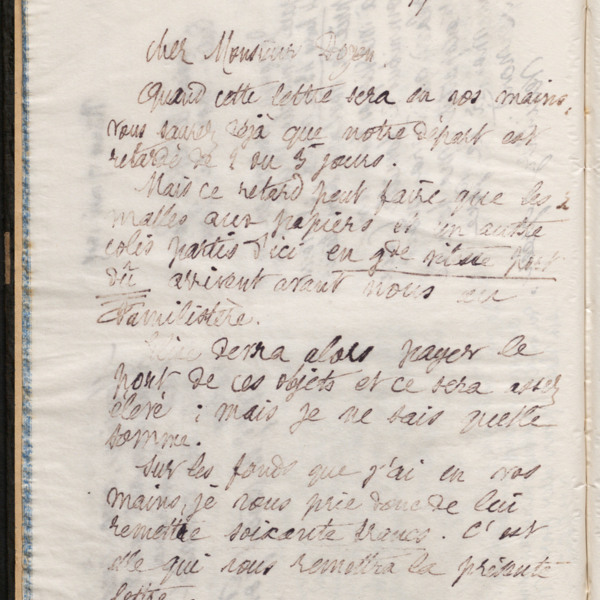 cher Monsieur Doyen
Quand cette lettre sera en vos mains,
vous saurez déjà que notre départ est
retardé de 2 ou 3 jours.
Mais ce retard peut faire que les 2
malles aux papiers et un autre
colis partis d'ici en gde vitesse port
dû arrivent avant nous au
Familistère.
devra alors payer le
port de ces objets et ce sera assez
élevé ; mais je ne sais quelle
somme.
Sur les fonds que j'ai en vos
mains, je vous prie donc de lui
remettre soixante francs. C'est
elle qui vous remettra la présente
lettre.